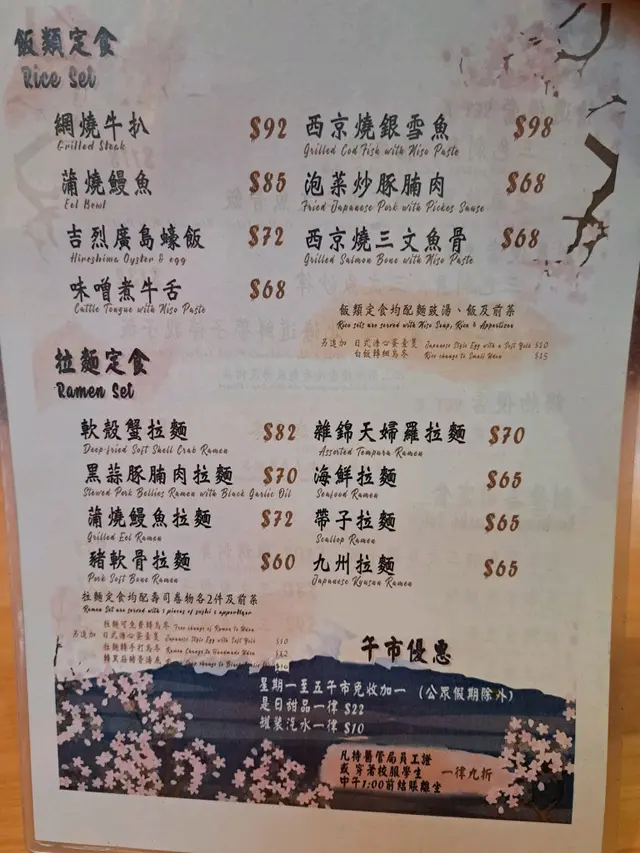 飯類定食
Rice Set
網燒牛扒 $92
Grilled Steak
西京燒銀雪魚 $98
Grilled Cod Fish with Miso Paste
蒲燒鰻魚 $85
Eel Bowl
泡菜炒豚腩肉 $68
Fried Japanese Pork with Pickes Sause
吉烈廣島蠔飯 $72
Hiroshima Oyster & egg
西京燒三文魚骨 $68
Grilled Salmon Bone with Miso Paste
味噌煮牛舌 $68
Cattle Tongue with Miso Paste
飯類定食均配麵豉湯、飯及前菜
Rice sets are served with Miso Soup, Rice & Appertiser
另追加 日式溏心蛋壹隻 Japanese Style Egg with a Soft Yolk $10
白飯轉細烏冬 Rice change to Small Udon $15
拉麵定食
Ramen Set
軟殼蟹拉麵 $82
Deep-fried Soft Shell Crab Ramen
雜錦天婦羅拉麵 $70
Assorted Tempura Ramen
黑蒜豚腩肉拉麵 $70
Stewed Pork Bellies Ramen with Black Garlic Oil
海鮮拉麵 $65
Seafood Ramen
蒲燒鰻魚拉麵 $72
Grilled Eel Ramen
帶子拉麵 $65
Scallop Ramen
豬軟骨拉麵 $60
Pork Soft Bone Ramen
九州拉麵 $65
Japanese Kyusuu Ramen
拉麵定食均配壽司卷物各2件及前菜
Ramen Set are served with 2 pieces of sushi &
拉麵可免費轉烏冬 Free change of Ramen to Udon
另追加 日式溏心蛋壹隻 Japanese Style Egg with Soft Yolk $10
拉麵轉手打烏冬 Ramen Change to Handmade Udon $12
轉黑蒜豬骨湯底 $10
午市優惠
星期一至五午市免收加一 (公眾假期除外)
是日甜品一律 $22
罐裝汽水一律 $10
凡持醫管局員工證
或 穿著校服學生 一律九折
中午1:00前結賬離座